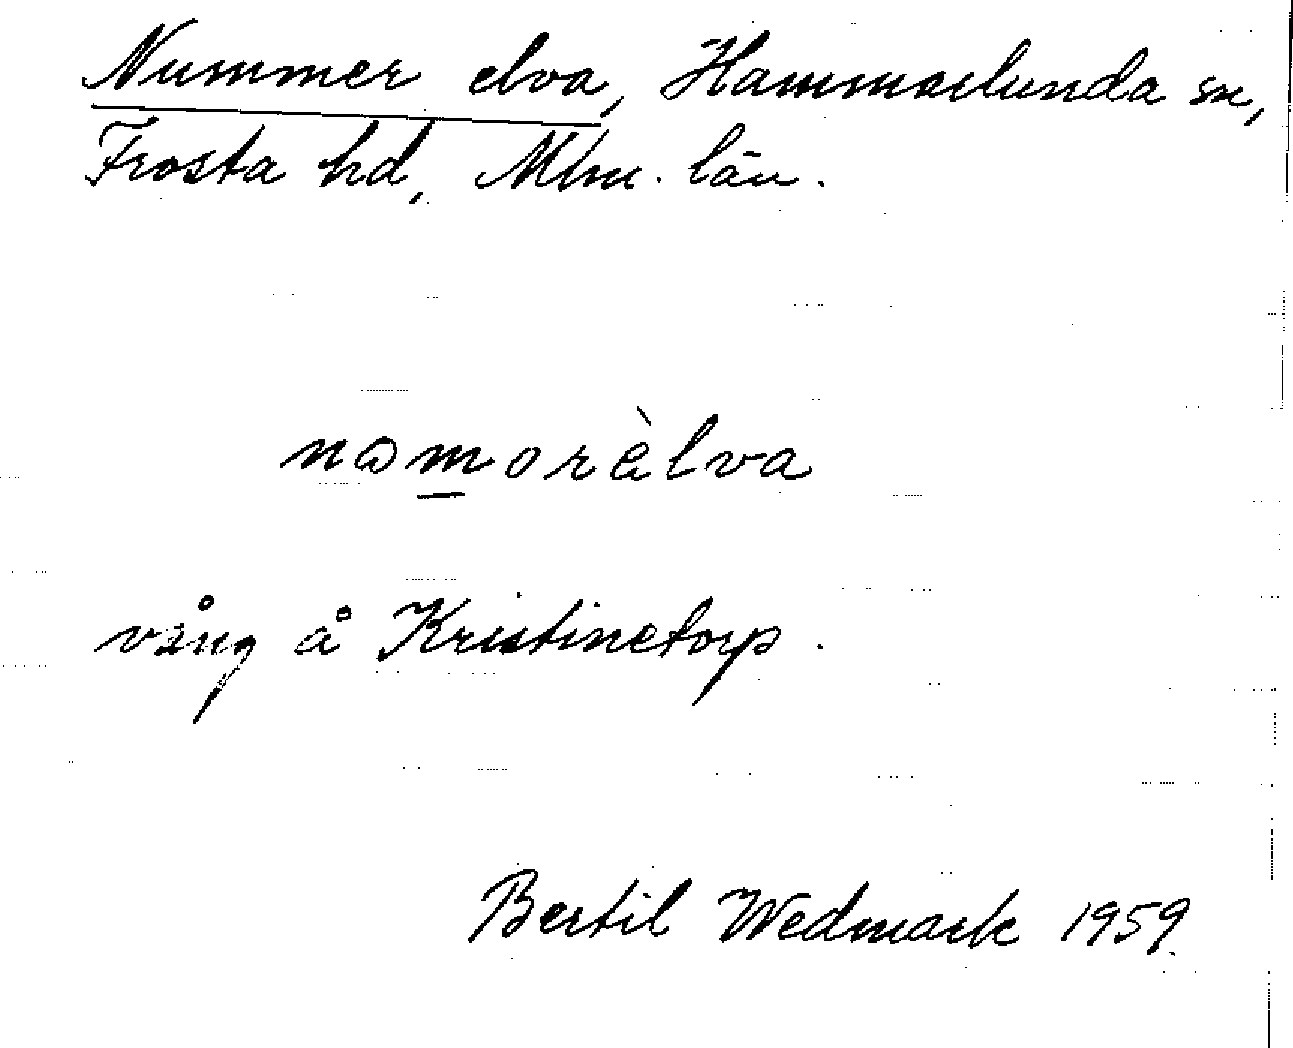 Nummer elva, Hammarlunda sn,
Frosta hd, Mlm. län.
nɷmorèlva
vång å Kristinetorp.
Bertil Wedmark 1959.